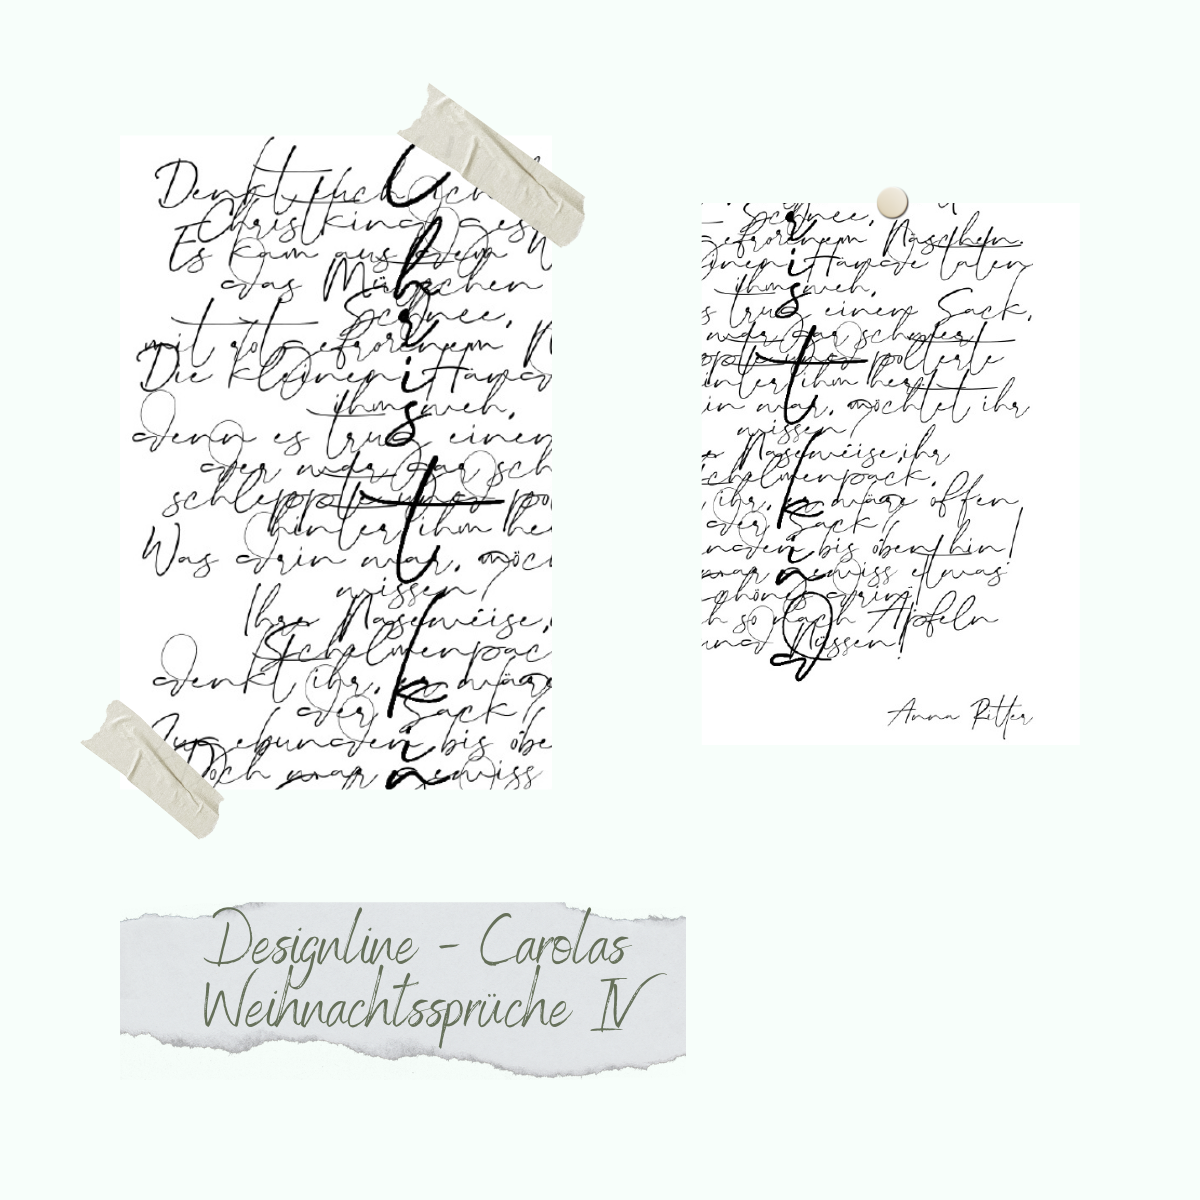 Denkt euch, ich
Christkind ges
Es kam aus dem W
das Mützchen
Schnee,
mit rotgefrorenem N
Die kleinen Hände
ihm weh,
denn es trug einen
der war gar sch
schleppte und po
hinter ihm he
Was drin war, möc
wissen?
Ihr Naseweise,
Schelmenpac
denkt ihr, er wäre
der Sack?
Zugebunden bis obe
Doch war gewiss
Christkind
Schnee,
gefrorenem Näschen.
inen Hände taten
ihm weh,
s trug einen Sack,
war gar schwer,
pte und polterte
inter ihm her
in war, möchtet ihr
wissen?
Naseweise, ihr
chelmenpack,
ihr, er wäre offen
der Sack?
unden bis oben hin!
war gewiss etwas
drin!
h so nach Äpfeln
und Nüssen!
Anna Ritter
Designline - Carolas
Weihnachtssprüche IV